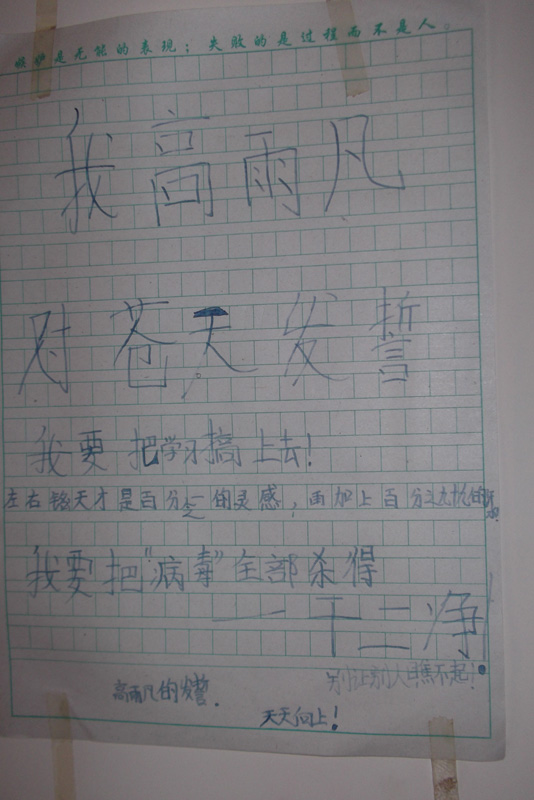 嫉妒是无能的表现；失败的是过程而不是人。
我高雨凡
对苍天发誓
我要把学习搞上去！
左右铭天才是百分之一的灵感，再加上百分之九十九的
我要把“病毒”全部杀得
一干二净
别让别人瞧不起！
高雨凡的发誓.
天天向上！